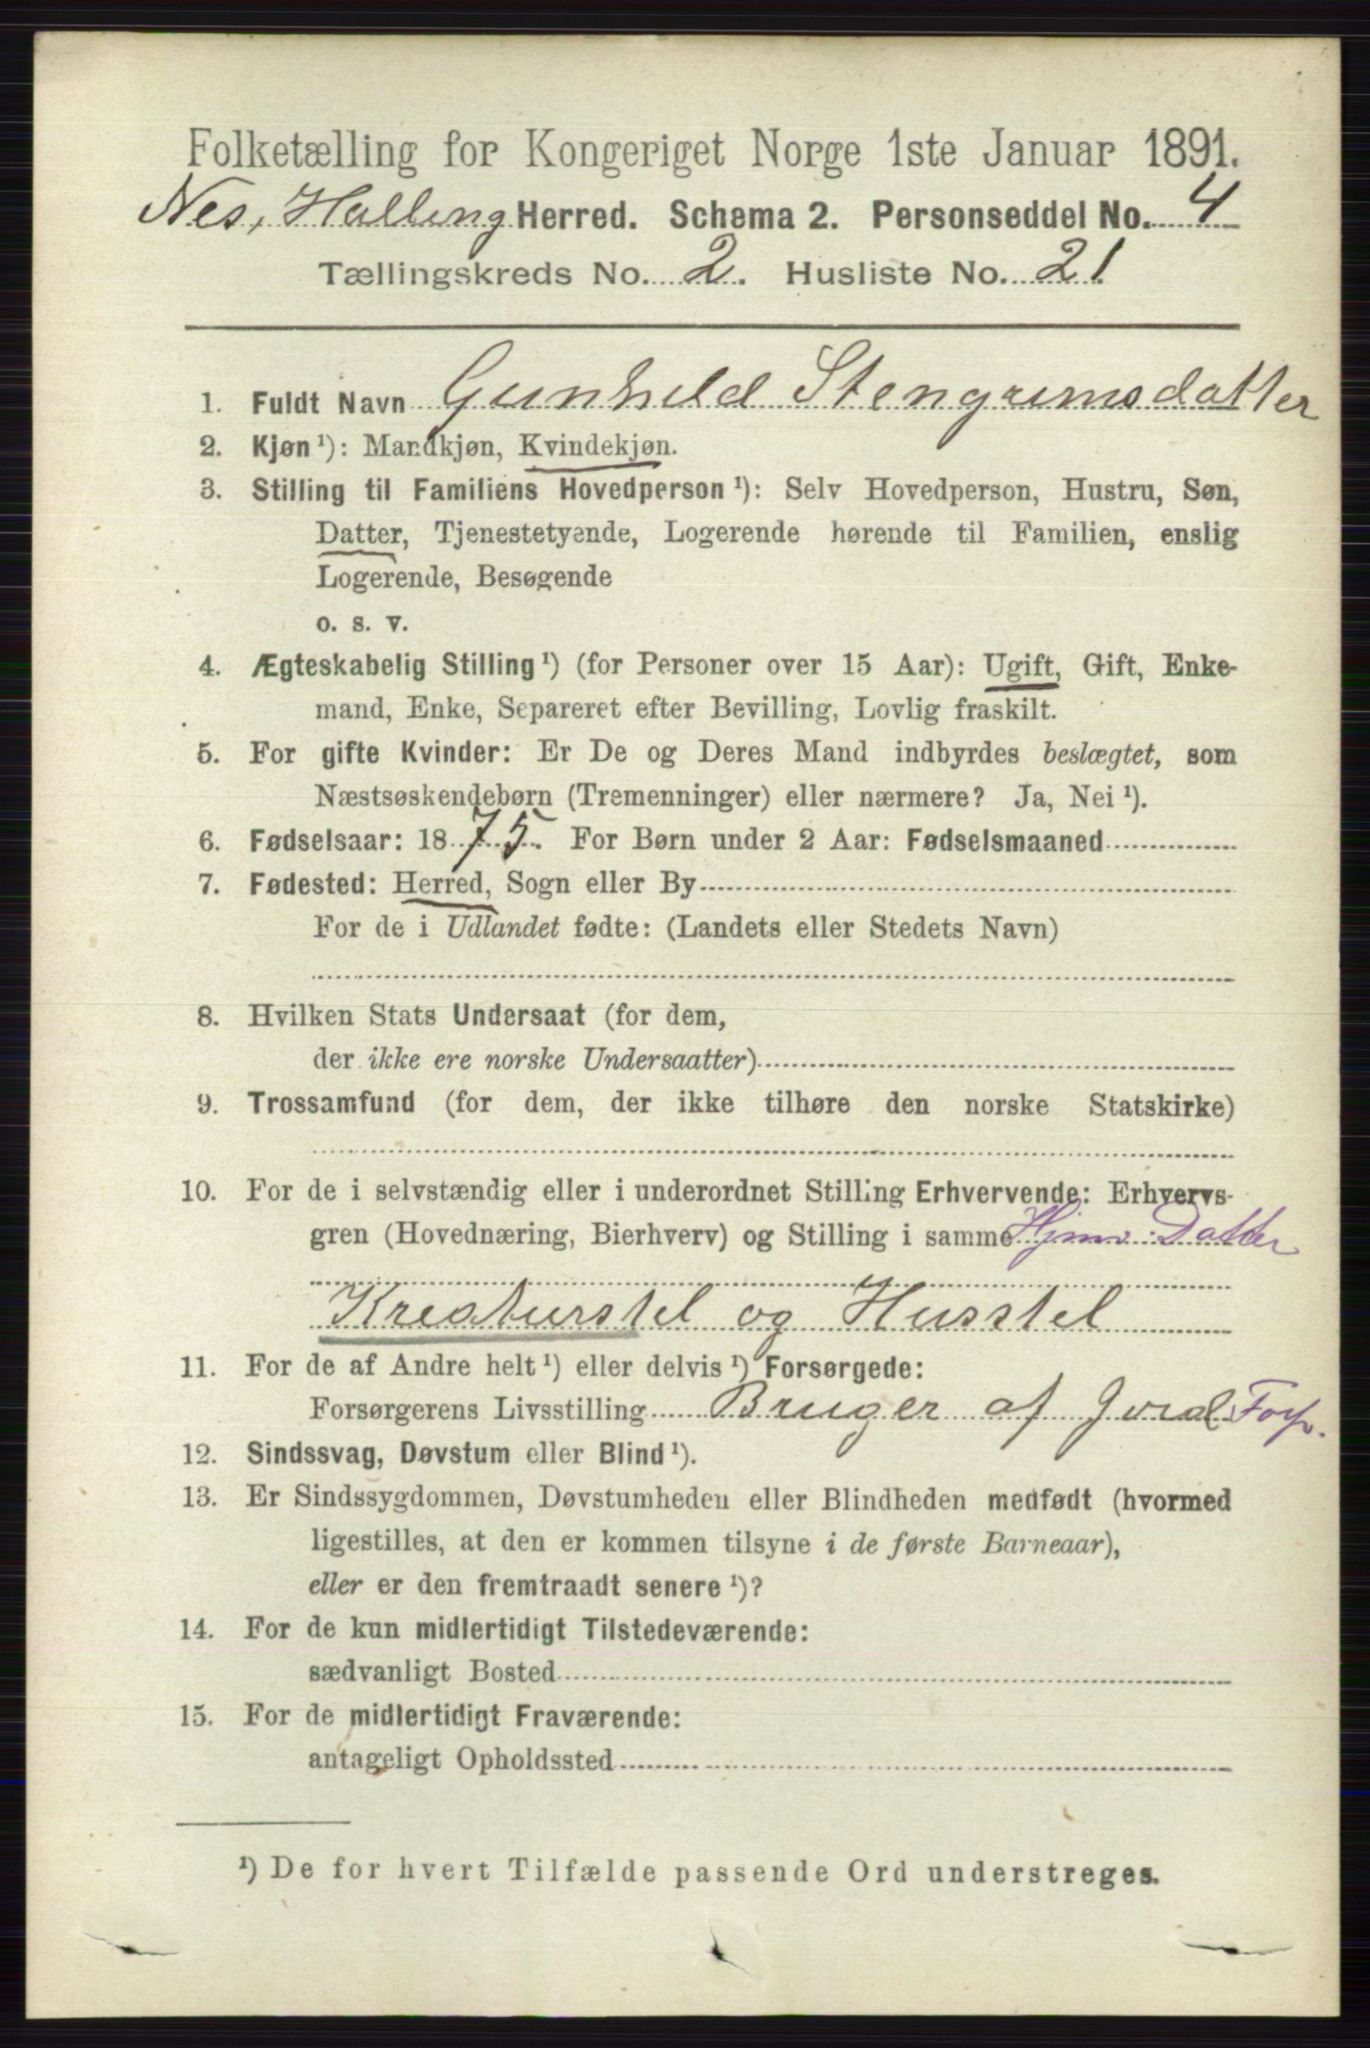 Folketælling for Kongeriget Norge 1ste Januar 1891.
Nes, Halling Herred. Schema 2. Personseddel No. 4
Tællingskreds No. 2. Husliste No. 21.
1. Fuldt Navn Gunhild Stengrimsdatter
2. Kjøn ¹): Mandkjøn, Kvindekjøn.
3. Stilling til Familiens Hovedperson ¹): Selv Hovedperson, Hustru, Søn,
Datter, Tjenestetyende, Logerende hørende til Familien, enslig
Logerende, Besøgende
o. s. v.
4. Ægteskabelig Stilling ¹) (for Personer over 15 Aar): Ugift, Gift, Enke-
mand, Enke, Separeret efter Bevilling, Lovlig fraskilt.
5. For gifte Kvinder: Er De og Deres Mand indbyrdes beslægtet, som
Næstsøskendebørn (Tremenninger) eller nærmere? Ja, Nei ¹).
6. Fødselsaar: 1875. For Børn under 2 Aar: Fødselsmaaned
7. Fødested: Herred, Sogn eller By
For de i Udlandet fødte: (Landets eller Stedets Navn)
8. Hvilken Stats Undersaat (for dem,
der ikke ere norske Undersaatter)
9. Trossamfund (for dem, der ikke tilhøre den norske Statskirke)
10. For de i selvstændig eller i underordnet Stilling Erhvervende: Erhvervs-
gren (Hovednæring, Bierhverv) og Stilling i samme Hjmv. Datter
Kreaturstel og Husstel
11. For de af Andre helt ¹) eller delvis ¹) Forsørgede:
Forsørgerens Livsstilling Bruger af Jord
12. Sindssvag, Døvstum eller Blind ¹).
13. Er Sindssygdommen, Døvstumheden eller Blindheden medfødt (hvormed
ligestilles, at den er kommen tilsyne i de første Barneaar),
eller er den fremtraadt senere ¹)?
14. For de kun midlertidigt Tilstedeværende:
sædvanligt Bosted
15. For de midlertidigt Fraværende:
antageligt Opholdssted
¹) De for hvert Tilfælde passende Ord understreges.